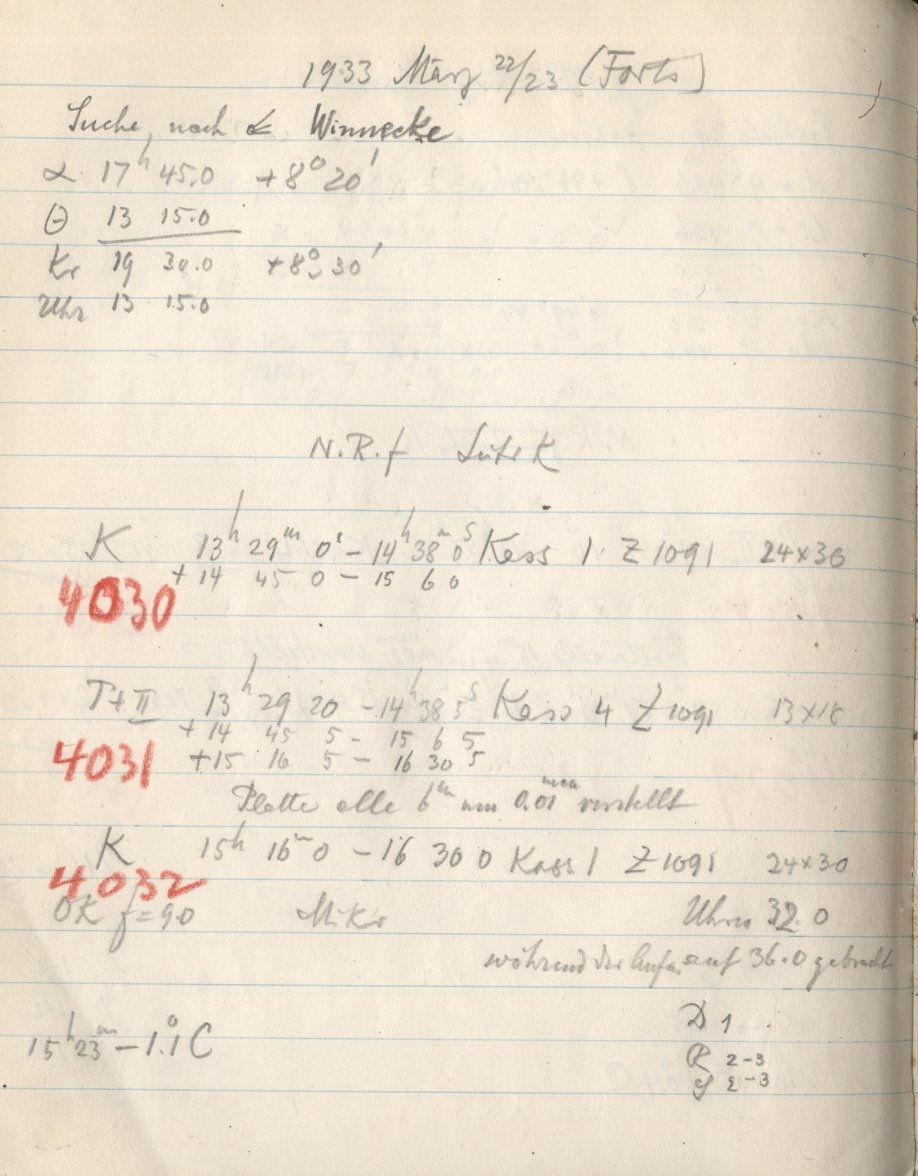 1933 März 22/23 (Forts)
Suche nach ☄ Winnecke
α 17h 45.0 +8° 20'
θ 13 15.0
Kr 19 30.0 +8° 30'
Uhr 13 15.0
N.R.f
K 13h 29m 0s – 14h 38m 0s Kass 1 Z 1091 24×30
+14 45 0 – 15 6 0
4030
T+II 13h 29 20 – 14h 38 5s Kass 4 Z 1091 13×18
+14 45 5 – 15 6 5
4031 +15 16 5 – 16 30 5
Platte alle 6m um 0.01 mm verstellt
K 15h 16m 0 – 16 30 0 Kass 1 Z 1091 24×30
4032
OK f=90 M.Kr Uhrw 32.0
während der Aufn. auf 36.0 gebracht
15h 23m –1.°1 C
D 1
R 2–3
2–3